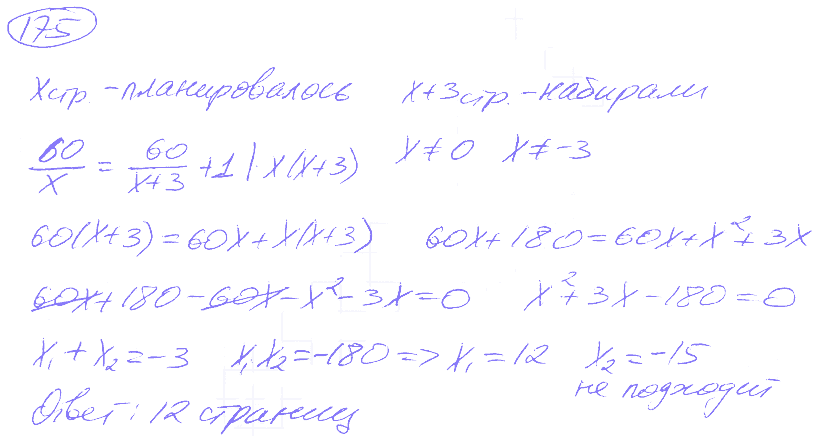 175
X стр. - планировалось X+3 стр. - набирали
60/X = 60/(X+3) + 1 | · X(X+3) X ≠ 0 X ≠ -3
60(X+3) = 60X + X(X+3) 60X + 180 = 60X + X² + 3X
60X + 180 - 60X - X² - 3X = 0 X² + 3X - 180 = 0
X₁ + X₂ = -3 X₁X₂ = -180 => X₁ = 12 X₂ = -15
не подходит
Ответ: 12 страниц